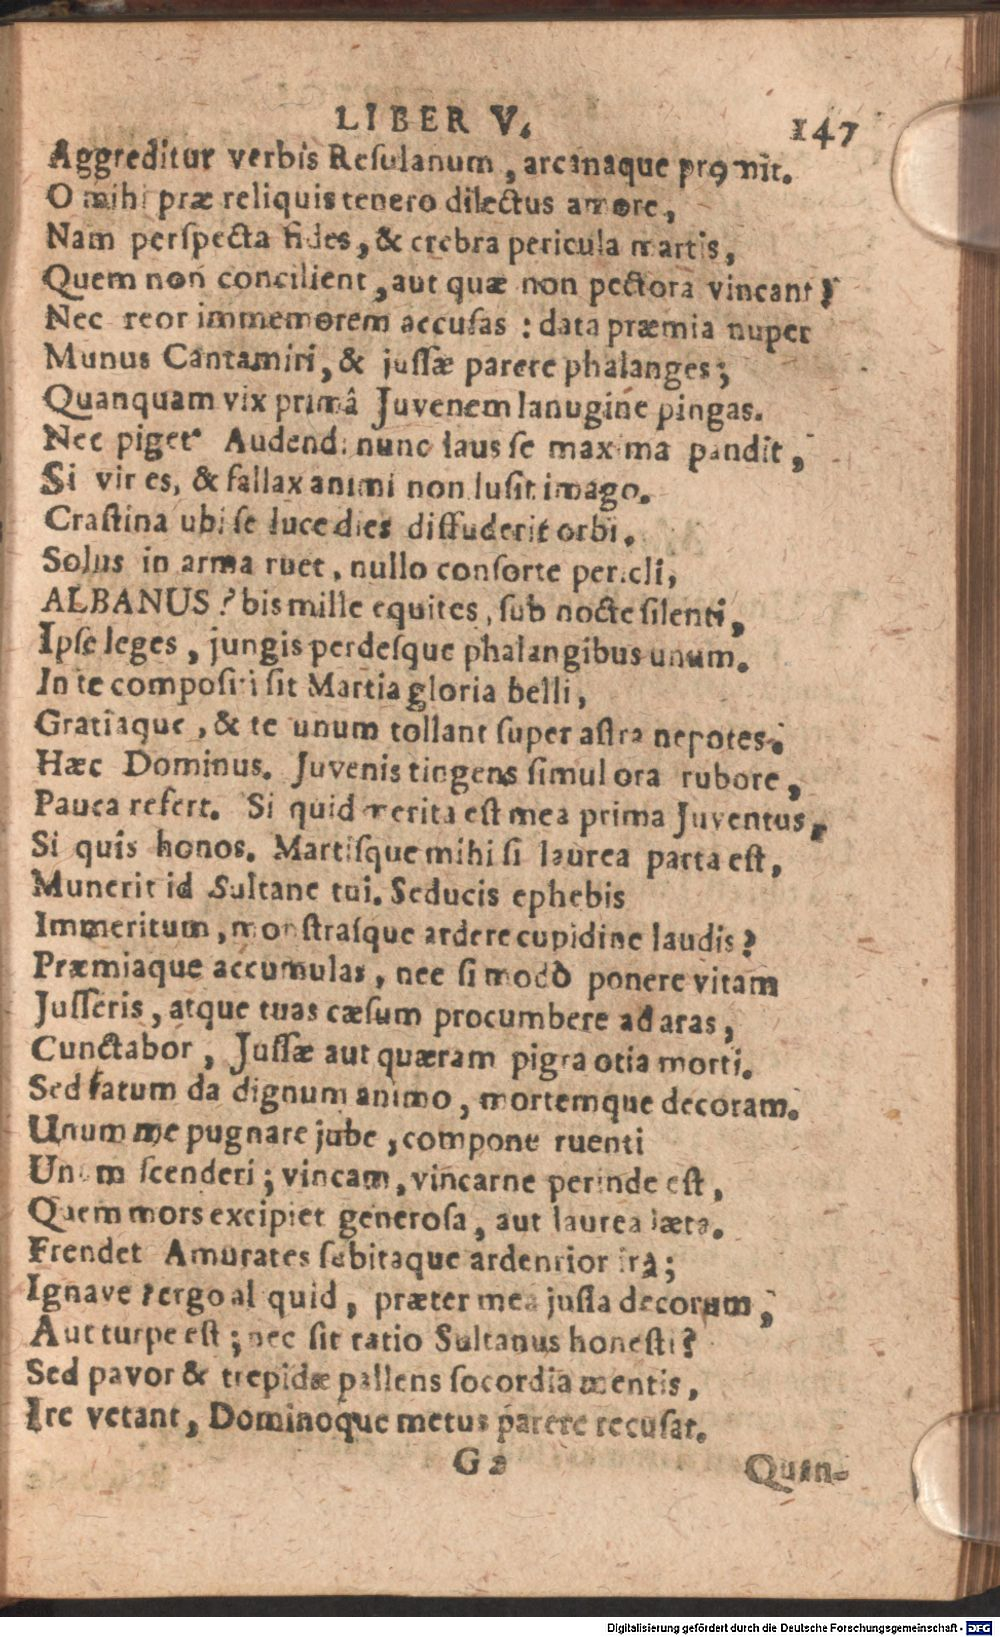 LIBER V. 147
Aggreditur verbis Resulanum, arcanaque promit.
O mihi præ reliquis tenero dilectus amore,
Nam perspecta fides, & crebra pericula martis,
Quem non concilient, aut quæ non pectora vincant?
Nec reor immemorem accusas: data præmia nuper
Munus Cantamiri, & jussæ parere phalanges;
Quanquam vix primâ Juvenem lanugine pingas.
Nec piget Audendi nunc laus se maxima pandit,
Si vir es, & fallax animi non lusit imago.
Crastina ubi se luce dies diffuderit orbi.
Solus in arma ruet, nullo consorte pericli,
ALBANUS? bis mille equites, sub nocte silenti,
Ipse leges, jungis perdesque phalangibus unum.
In te compositi sit Martia gloria belli,
Gratiaque, & te unum tollant super astra nepotes.
Hæc Dominus. Juvenis tingens simul ora rubore,
Pauca refert. Si quid merita est mea prima Juventus,
Si quis honos. Martisque mihi si laurea parta est,
Munerit id Sultane tui. Seducis ephebis
Immeritum, monstrasque ardere cupidine laudis?
Præmiaque accumulas, nec si modò ponere vitam
Jusseris, atque tuas cæsum procumbere ad aras,
Cunctabor, Jussæ aut quæram pigra otia morti.
Sed fatum da dignum animo, mortemque decoram.
Unum me pugnare jube, compone ruenti
Unum scenderi; vincam, vincarne perinde est,
Quem mors excipiet generosa, aut laurea læta.
Frendet Amurates subitaque ardentior ira;
Ignave ergo al quid, præter mea jussa decorum,
Aut turpe est; nec sit ratio Sultanus honesti?
Sed pavor & trepidæ pallens socordia mentis,
Ire vetant, Dominoque metus parere recusat.
G 2 Quan-
Digitalisierung gefördert durch die Deutsche Forschungsgemeinschaft - DFG